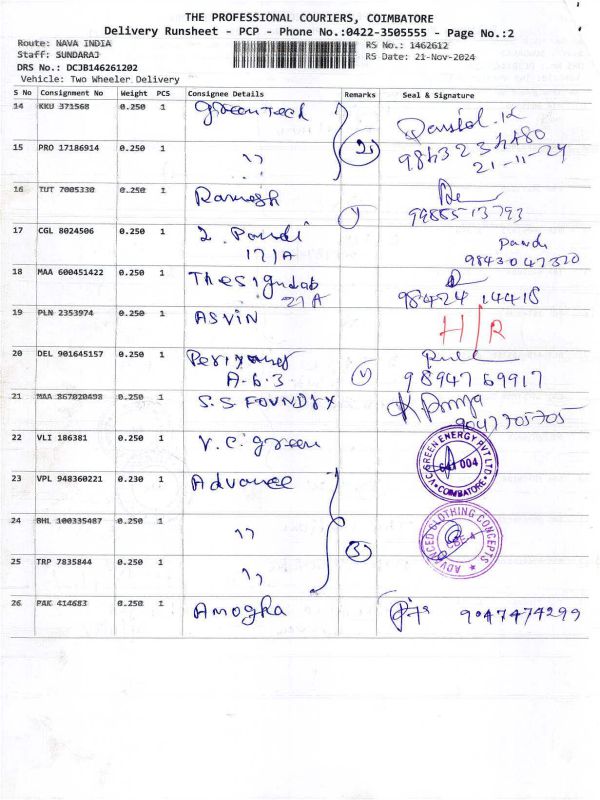 THE PROFESSIONAL COURIERS, COIMBATORE
Delivery Runsheet - PCP - Phone No.:0422-3505555 - Page No.:2
Route: NAVA INDIA
RS No.: 1462612
Staff: SUNDARAJ
RS Date: 21-Nov-2024
DRS No.: DCJB146261202
Vehicle: Two Wheeler Delivery
S No Consignment No Weight PCS Consignee Details Remarks Seal & Signature
14 KKU 371568 0.250 1 Green Tech
15 PRO 17186914 0.250 1 " 2
9843234480
21-11-24
16 TUT 7005330 0.250 1 Ramesh
9985513793
17 CGL 8024506 0.250 1 2. Pandi Pandi
171A 9843047320
18 MAA 600451422 0.250 1 Thesignlab
27A 98424 14418
19 PLN 2353974 0.250 1 ASVIN H/R
20 DEL 901645157 0.250 1
A.6.3 98947 69917
21 MAA 867020498 0.250 1 S.S FOUNDRY
9047705705
22 VLI 186381 0.250 1 V.C. Green
V.C. GREEN ENERGY PVT LTD. COIMBATORE
641 004
23 VPL 948360221 0.230 1 Advance
24 BHL 100335487 0.250 1 " 3
ADVANCED CLOTHING CONCEPTS
CBE-4
25 TRP 7835844 0.250 1 "
26 PAK 414683 0.250 1 Amogha 9047474299